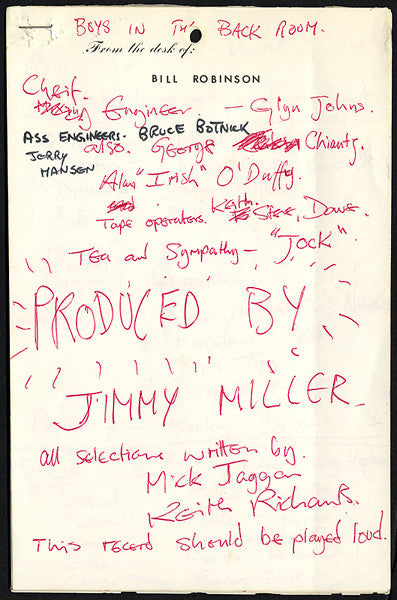 BOYS IN TH' BACK ROOM.
From the desk of:
BILL ROBINSON
Cheif. Engineer. — Glyn Johns.
ASS ENGINEERS. BRUCE BOTNICK
JERRY HANSEN
also. George Chiantz.
Alan "Irish" O'Duffy.
Tape operators. Keith. Steve, Dave.
Tea and Sympathy — "Jock".
PRODUCED BY
JIMMY MILLER.
all selections written by.
Mick Jaggar
Keith Richards.
This record should be played loud.